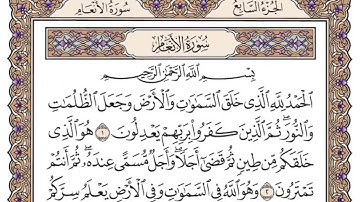 سُورَةُ الأَنْعَامِ
الجُزْءُ السَّابِعُ
سُورَةُ الأَنْعَامِ
بِسْمِ اللَّهِ الرَّحْمَٰنِ الرَّحِيمِ
الْحَمْدُ لِلَّهِ الَّذِي خَلَقَ السَّمَٰوَٰتِ وَالْأَرْضَ وَجَعَلَ الظُّلُمَٰتِ
وَالنُّورَ ۖ ثُمَّ الَّذِينَ كَفَرُوا۟ بِرَبِّهِمْ يَعْدِلُونَ ١ هُوَ الَّذِي
خَلَقَكُم مِّن طِينٍ ثُمَّ قَضَىٰٓ أَجَلًا ۖ وَأَجَلٌ مُّسَمًّى عِندَهُۥ ۖ ثُمَّ أَنتُمْ
تَمْتَرُونَ ٢ وَهُوَ اللَّهُ فِي السَّمَٰوَٰتِ وَفِي الْأَرْضِ يَعْلَمُ سِرَّكُمْ